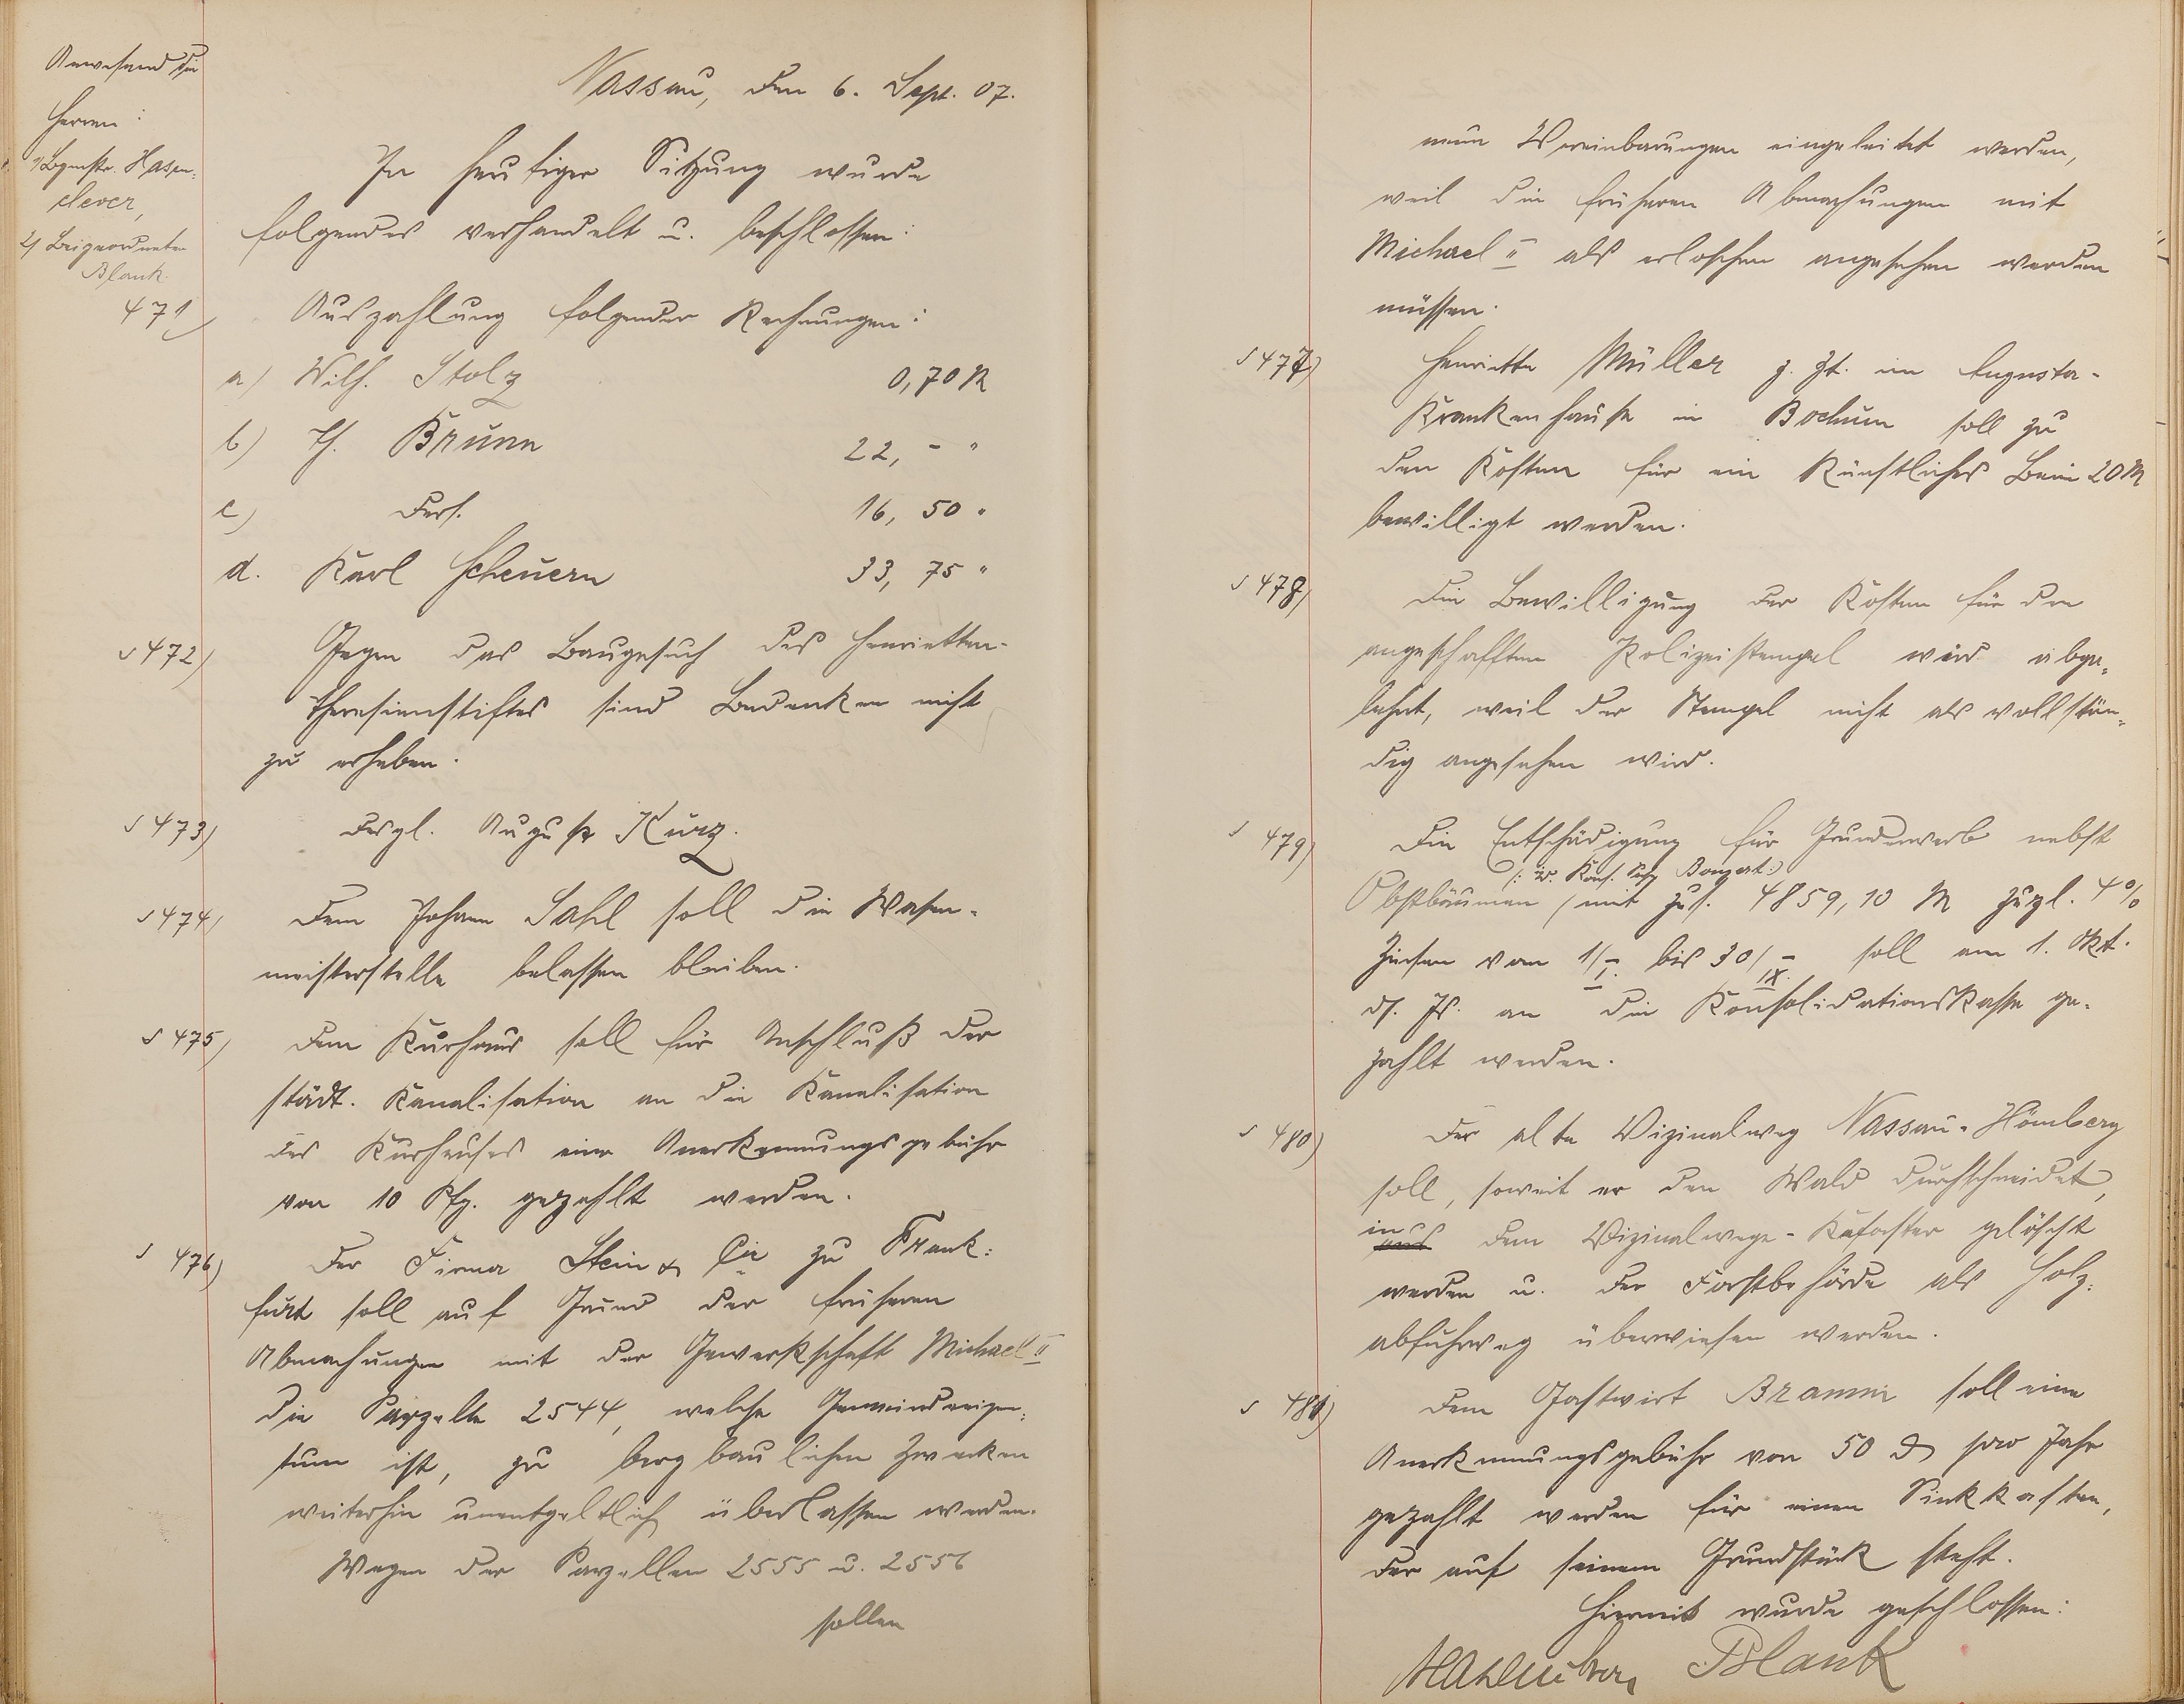 Anwesend die
Herren:
1) Bgmstr. Hasen=
clever,
2) Beigeordneter
Blank.
Nassau, den 6. Sept. 07.
In heutiger Sitzung wurde
folgendes verhandelt u. beschlossen:
471) Auszahlung folgender Rechnungen:
a) Wilh. Stolz 0,70 M
b) Th. Brunn 22, - "
c) Ders. 16, 50 "
d. Karl Scheuern 33, 75 "
§ 472) Gegen das Baugesuch des Henrietten-
Theresienstiftes sind Bedenken nicht
zu erheben.
§ 473) Desgl. August Kurz.
§ 474) Dem Johann Sahl soll die Wasen-
meisterstelle belassen bleiben.
§ 475) Dem Kurhaus soll für Anschluß der
städt. Kanalisation an die Kanalisation
des Kurhauses eine Anerkennungsgebühr
von 10 Pfg. gezahlt werden.
§ 476) Der Firma Stein & Cie zu Frank=
furt soll auf Grund der früheren
Abmachungen mit der Gewerkschaft Michael II
die Parzelle 2544, welche Gemeindeeigen=
tum ist, zu bergbaulichen Zwecken
weiterhin unentgeltlich überlassen werden.
Wegen der Parzellen 2555 u. 2556
sollen
neue Vereinbarungen eingeleitet werden,
weil die früheren Abmachungen mit
Michael II als erloschen angesehen werden
müssen.
§ 477) Henriette Müller z. Zt. im Augusta-
Krankenhause in Bochum soll zu
den Kosten für ein künstliches Bein 20 M
bewilligt werden.
§ 478) Die Bewilligung der Kosten für den
angeschafften Polizeistempel wird abge=
lehnt, weil der Stempel nicht als vollstän=
dig angesehen wird.
§ 479) Die Entschädigung für Grunderwerb nebst
(: Kons. Bongert:)
Obstbäumen mit zus. 4859,10 M zuzgl. 4%
Zinsen vom 1/I. bis 30/IX. soll am 1. Okt.
ds. Js. an die Konsolidationskasse ge-
zahlt werden.
§ 480) Der alte Vizinalweg Nassau-Hömberg
soll, soweit er den Wald durchschneidet,
in
aus dem Vizinalwege-Kataster gelöscht
werden u. der Forstbehörde als Holz=
abfuhrweg überwiesen werden.
§ 481) Dem Gastwirt Bramm soll eine
Anerkennungsgebühr von 50 ₰ pro Jahr
gezahlt werden für einen Sinkkasten,
der auf seinem Grundstück steht.
Hiermit wurde geschlossen:
Hasenclever Blank